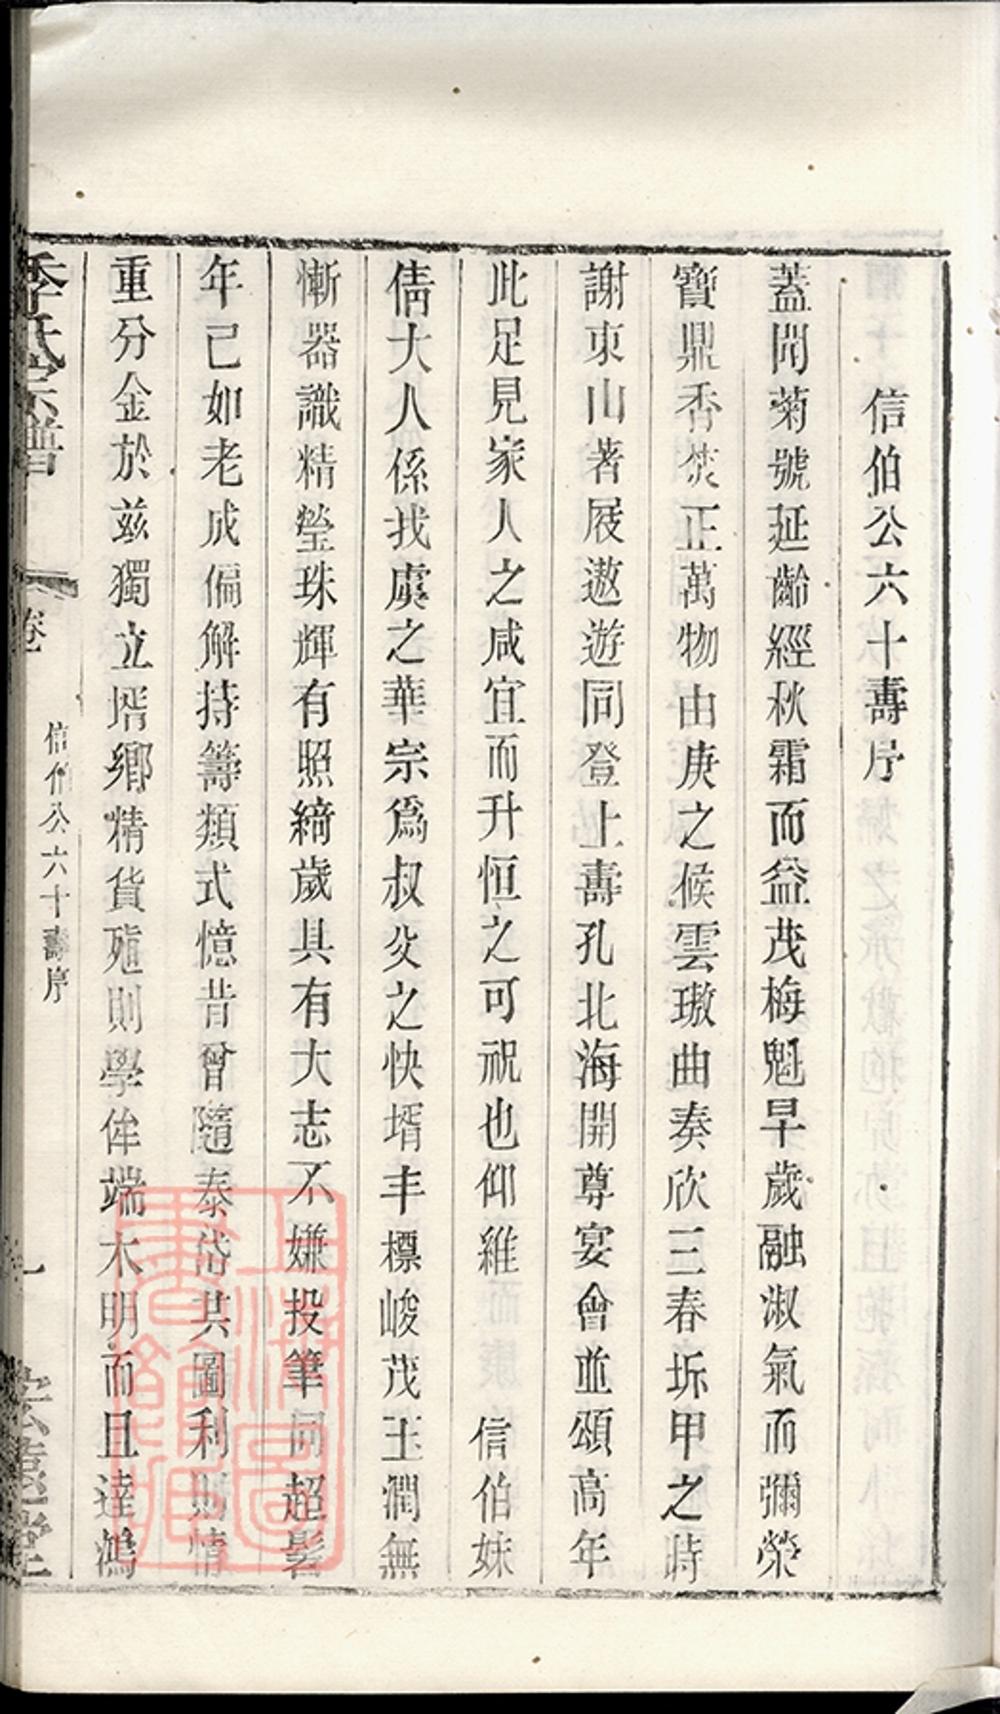 信伯公六十壽序
蓋聞菊號延齡經秋霜而益茂梅魁早歲融淑氣而彌榮
寶鼎香焚正萬物由庚之候雲璈曲奏欣三春坼甲之時
謝東山著屐遨遊同登上壽孔北海開尊宴會並頌高年
此足見家人之咸宜而升恒之可祝也仰維 信伯妹
倩大人係我虞之華宗爲叔父之快壻丰標峻茂玉潤無
慚器識精瑩珠輝有照綺歲具有大志不嫌投筆同超髫
年已如老成偏解持籌類式憶昔曾隨泰岱共圖利則情
重分金於兹獨立壻鄉精貨殖則學侔端木明而且達鴻
季氏宗譜
卷
信伯公六十壽序
一
上海圖書館藏